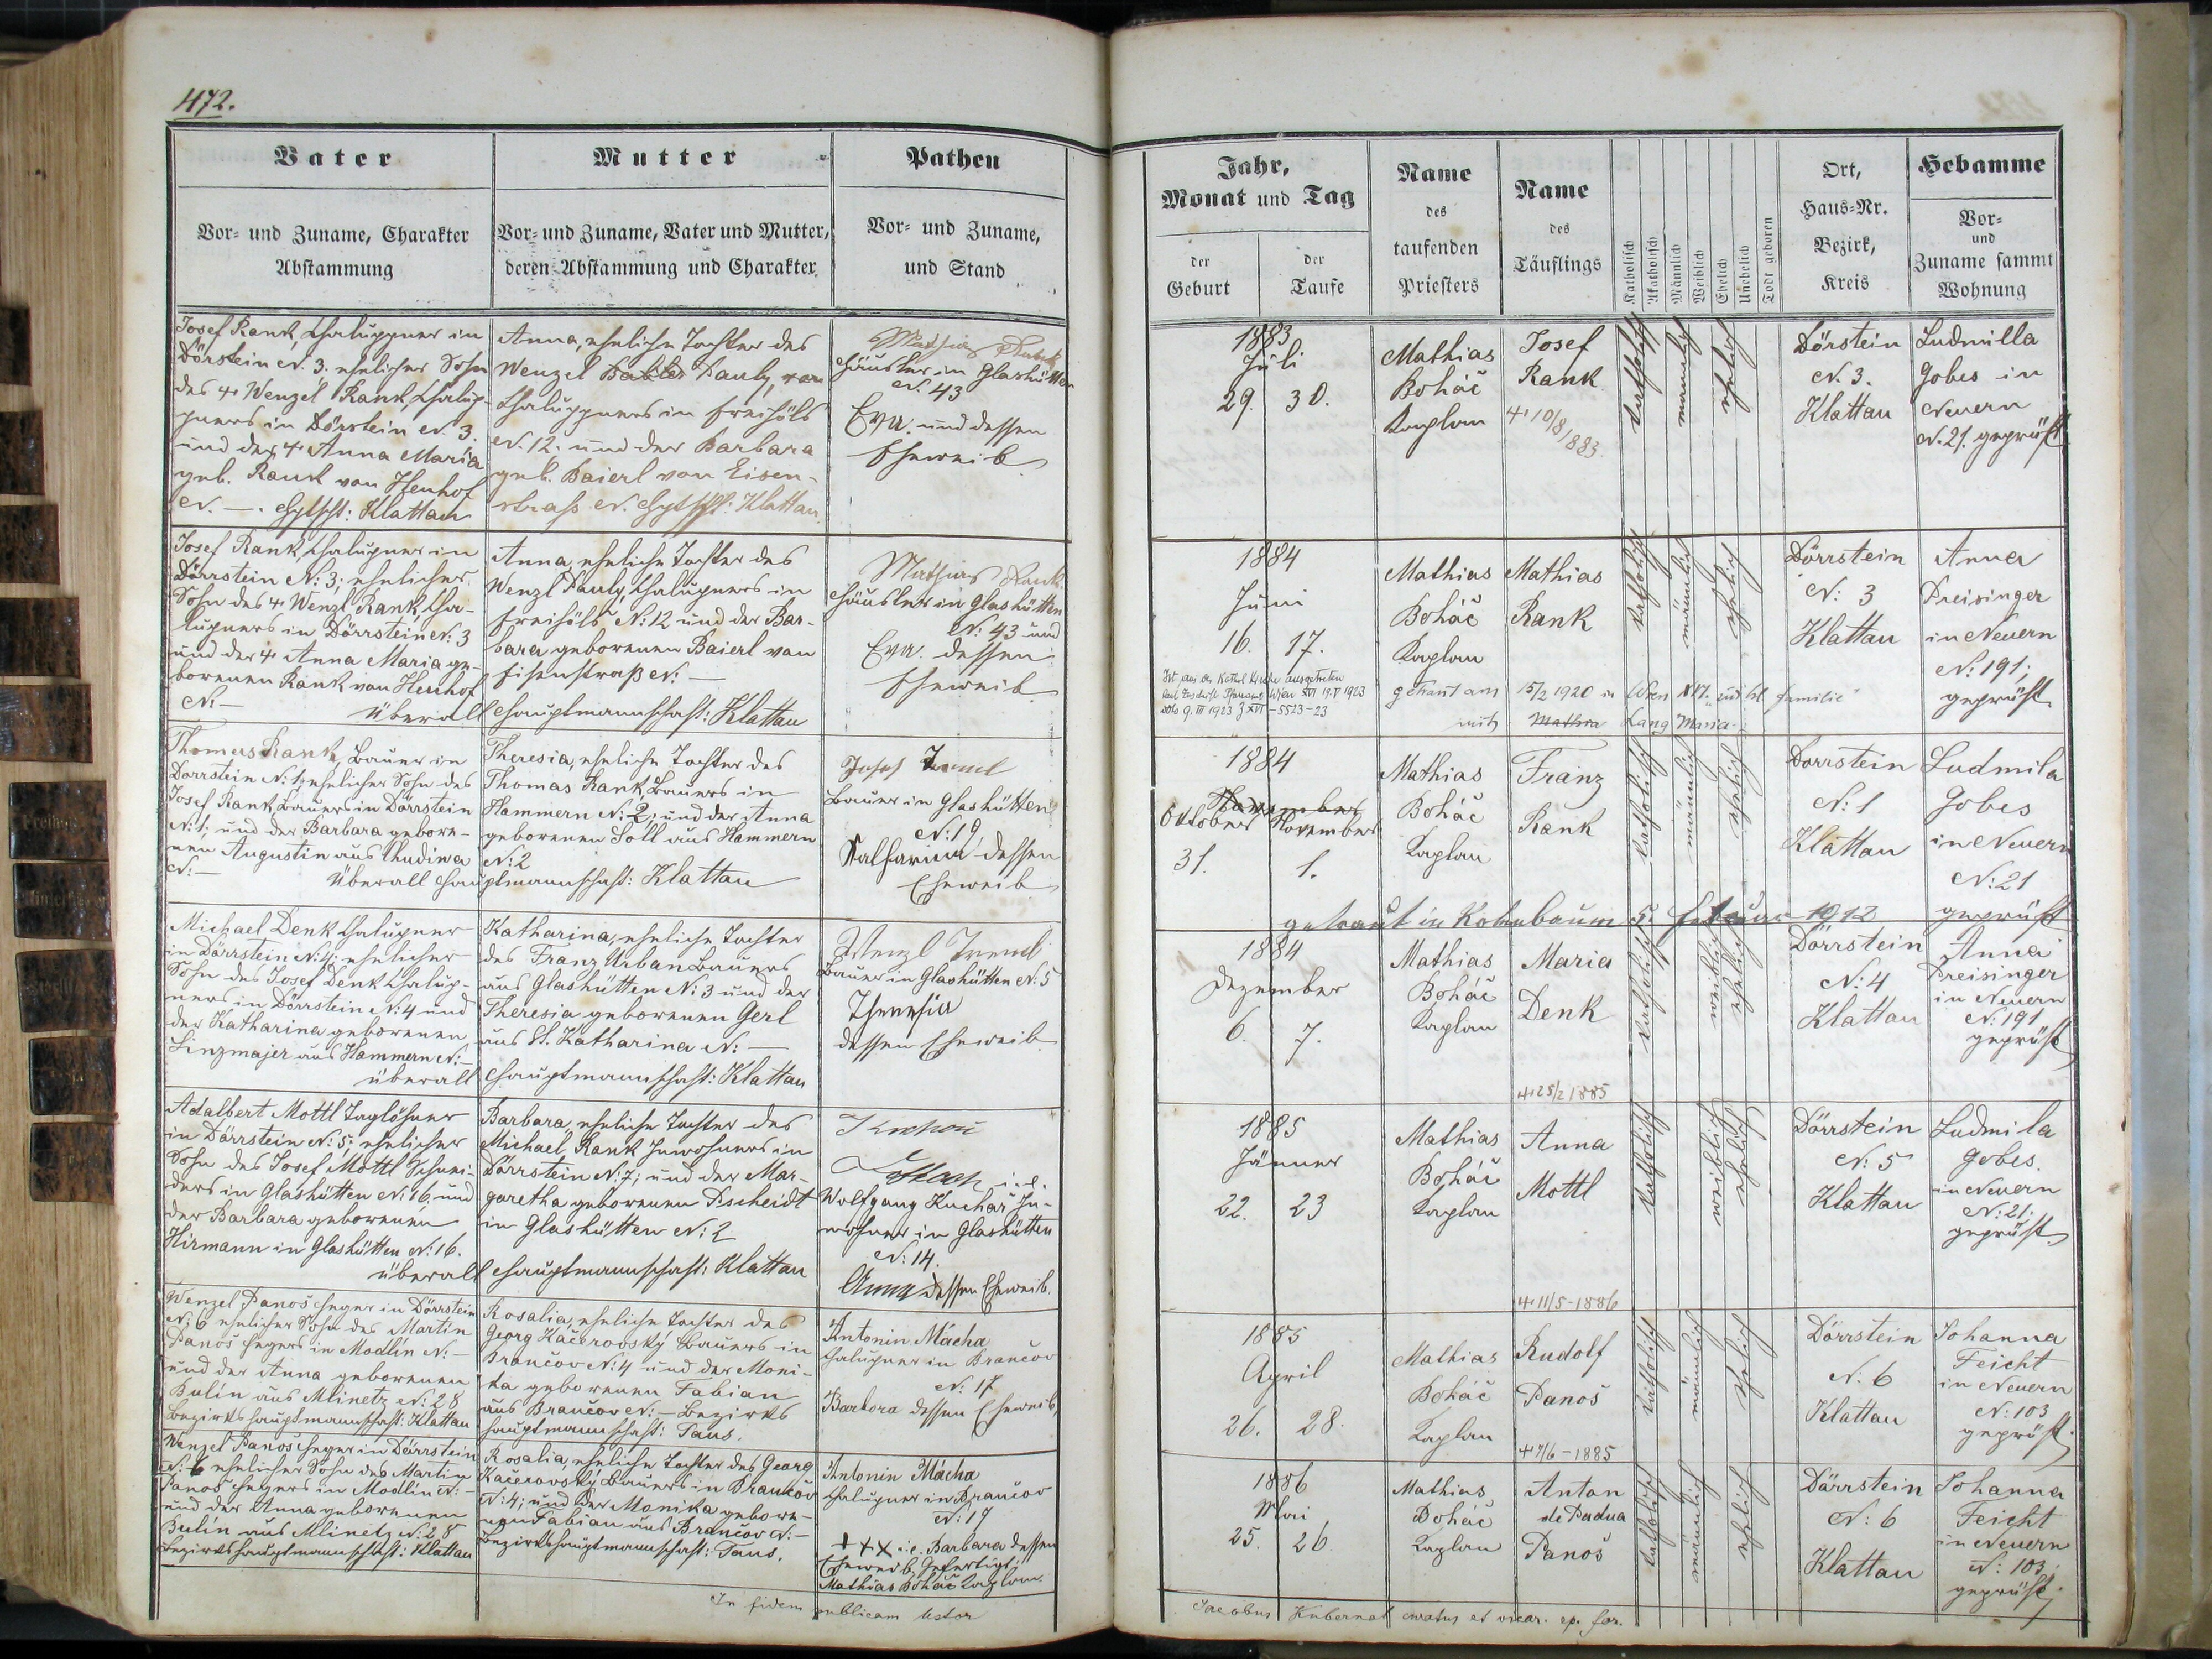 472.
Vater
Mutter
Pathen
Vor- und Zuname, Charakter
Abstammung
Vor- und Zuname, Vater und Mutter,
deren Abstammung und Charakter
Vor- und Zuname,
und Stand
Josef Rank, Chaluppner in
Dörstein N. 3. ehelicher Sohn
des + Wenzel Rank, Chalup-
pners in Dörstein N. 3.
und der + Anna Maria
geb. Rank von Henhof
N. —. Hptsch: Klattau
Anna, eheliche Tochter des
Wenzel Pauly,
Chaluppners in Freihöls
N. 12. und der Barbara
geb. Baierl von Eisen-
strass N. Hptsch: Klattau.
Mathias Rank
Häusler in Glashütten
N. 43
Eva. und dessen
Eheweib
Josef Rank, Chalupner in
Dörrstein N: 3; ehelicher
Sohn des + Wenzl Rank, Cha-
lupners in Dörrstein N: 3
und der + Anna Maria ge-
borenen Rank von Henhof
N: —
Anna, eheliche Tochter des
Wenzl Pauly, Chalupners in
Freihöls N: 12 und der Bar-
bara geborenen Baierl von
Eisenstraß N: —
überall Hauptmannschaft: Klattau
Mathias Rank
Häusler in Glashütten
N: 43 und
Eva. dessen
Eheweib
Thomas Rank, Bauer in
Dorrstein N: 1; ehelicher Sohn des
Josef Rank Bauers in Dörrstein
N: 1; und der Barbara gebore-
nen Augustin aus Chudiwa
N: —
Theresia, eheliche Tochter des
Thomas Rank, Bauers in
Hammern N: 2; und der Anna
geborenen Soll aus Hammern
N: 2
überall Hauptmannschaft: Klattau
Josef
Bauer in Glashütten
N: 19,
dessen
Eheweib
Michael Denk Chalupner
in Dörrstein N: 4; ehelicher
Sohn des Josef Denk Chalup-
ners in Dörrstein N: 4 und
der Katharina geborenen
Linzmajer aus Hammern N: —
Katharina, eheliche Tochter
des Franz Urban Bauers
aus Glashütten N: 3 und der
Theresia geborenen Gerl
aus St. Katharina N: —
überall Hauptmannschaft: Klattau
Wenzl
Bauer in Glashütten N. 5
Theresia
dessen Eheweib
Adalbert Mottl Taglöhner
in Dörrstein N: 5; ehelicher
Sohn des Josef Mottl Schnei-
ders in Glashütten N: 16, und
der Barbara geborenen
Hirmann in Glashütten N: 16.
Barbara, eheliche Tochter des
Michael Rank Inwohners in
Dörrstein N: 7; und der Mar-
garetha geborenen Pscheidt
in Glashütten N: 2
überall Hauptmannschaft: Klattau
i. e.
Wolfgang Kuchař In-
wohner in Glashütten
N: 14.
Anna dessen Eheweib.
Wenzel Panoš Heger in Dörrstein
N: 6 ehelicher Sohn des Martin
Panoš Hegers in Modlin N: —
und der Anna geborenen
Bulín aus Mlinetz N: 28
Bezirkshauptmannschaft: Klattau
Rosalia, eheliche Tochter des
Georg Kačerovský Bauers in
Brančov N: 4 und der Moni-
ka geborenen Fabian
aus Brančov N: — Bezirks
hauptmannschaft: Taus.
Antonin Mácha
Chalupner in Brančov
N: 17
Barbora dessen Eheweib,
Wenzel Panoš Heger in Dörrstein
N: 6 ehelicher Sohn des Martin
Panoš Hegers in Modlin N: —
und der Anna geborenen
Bulín aus Mlinetz N: 28
Bezirkshauptmannschaft: Klattau
Rosalia, eheliche Tochter des Georg
Kačerovský Bauers in Brančov
N: 4; und der Monika gebore-
nen Fabian aus Brančov N: —
Bezirkshauptmannschaft: Taus.
Antonin Mácha
Chalupner in Brančov
N: 17
+++ i. e. Barbara dessen
Eheweib, Gefertigt:
Mathias Boháč Kaplan.
In fidem publicam testor
Jahr,
Monat und Tag
der
Geburt
der
Taufe
Name
des
taufenden
Priesters
Name
des
Täuflings
Katholisch
Akatholisch
Männlich
Weiblich
Ehelich
Unehelich
Todt geboren
Ort,
Haus-Nr.
Bezirk,
Kreis
Hebamme
Vor-
und
Zuname sammt
Wohnung
1883
Juli
29. 30.
Mathias
Boháč
Kaplan
Josef
Rank
+ 10/8 1883.
katholisch
männlich
ehelich
Dörstein
N. 3.
Klattau
Ludmilla
Gobes in
Neuern
N. 21. geprüft
1884
Juni
16. 17.
Mathias
Boháč
Kaplan
Mathias
Rank
katholisch
männlich
ehelich
Dörrstein
N: 3
Klattau
Anna
Preisinger
in Neuern
N: 191;
geprüft
Ist aus der Kathol. Kirche ausgetreten
laut Zuschrift Wien XVI 19. V 1923
dto 9. III 1923 Z XVI - 5523-23
getraut am 15/2 1920 in Wien "zur hl. Familie"
mit Mathia Lang Maria
1884
November
Oktober November
31. 1.
Mathias
Boháč
Kaplan
Franz
Rank
katholisch
männlich
ehelich
Dorrstein
N: 1
Klattau
Ludmila
Gobes
in Neuern
N: 21
geprüft
getraut in Rothenbaum 5. Februar 1912
1884
Dezember
6. 7.
Mathias
Boháč
Kaplan
Maria
Denk
+ 25/2 1885
katholisch
weiblich
ehelich
Dörrstein
N: 4
Klattau
Anna
Preisinger
in Neuern
N: 191
geprüft
1885
Jänner
22. 23
Mathias
Boháč
Kaplan
Anna
Mottl
+ 11/5 - 1886
katholisch
weiblich
ehelich
Dörrstein
N: 5
Klattau
Ludmila
Gobes.
in Neuern
N: 21.
geprüft
1885
April
26. 28.
Mathias
Boháč
Kaplan
Rudolf
Panoš
+ 7/6 - 1885
katholisch
männlich
ehelich
Dörrstein
N: 6
Klattau
Johanna
Feicht
in Neuern
N: 103
geprüft.
1886
Mai
25. 26.
Mathias
Boháč
Kaplan
Anton
de Padua
Panoš
katholisch
männlich
ehelich
Dörrstein
N: 6
Klattau
Johanna
Feicht
in Neuern
N: 103;
geprüft;
Jacobus Kubernat curatus et vicar. ep. for.